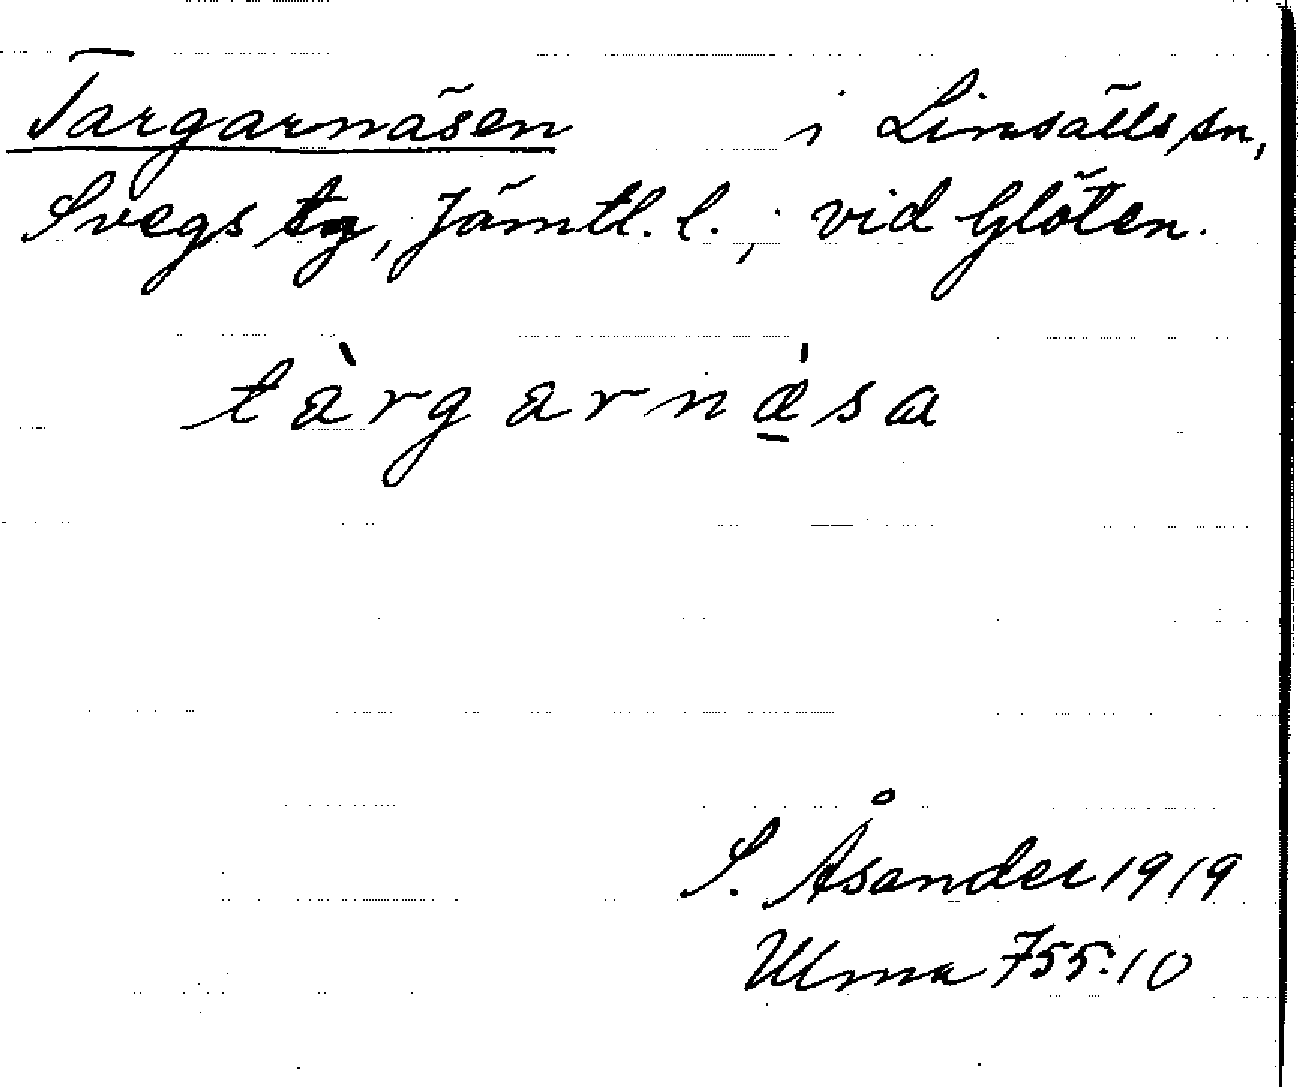 Targarnäsen i Linsälls sn,
Svegs tg, Jämtl. l., vid Glöten.
tàrgarnǽ̠sa
S. Åsander 1919
Ulma 755:10